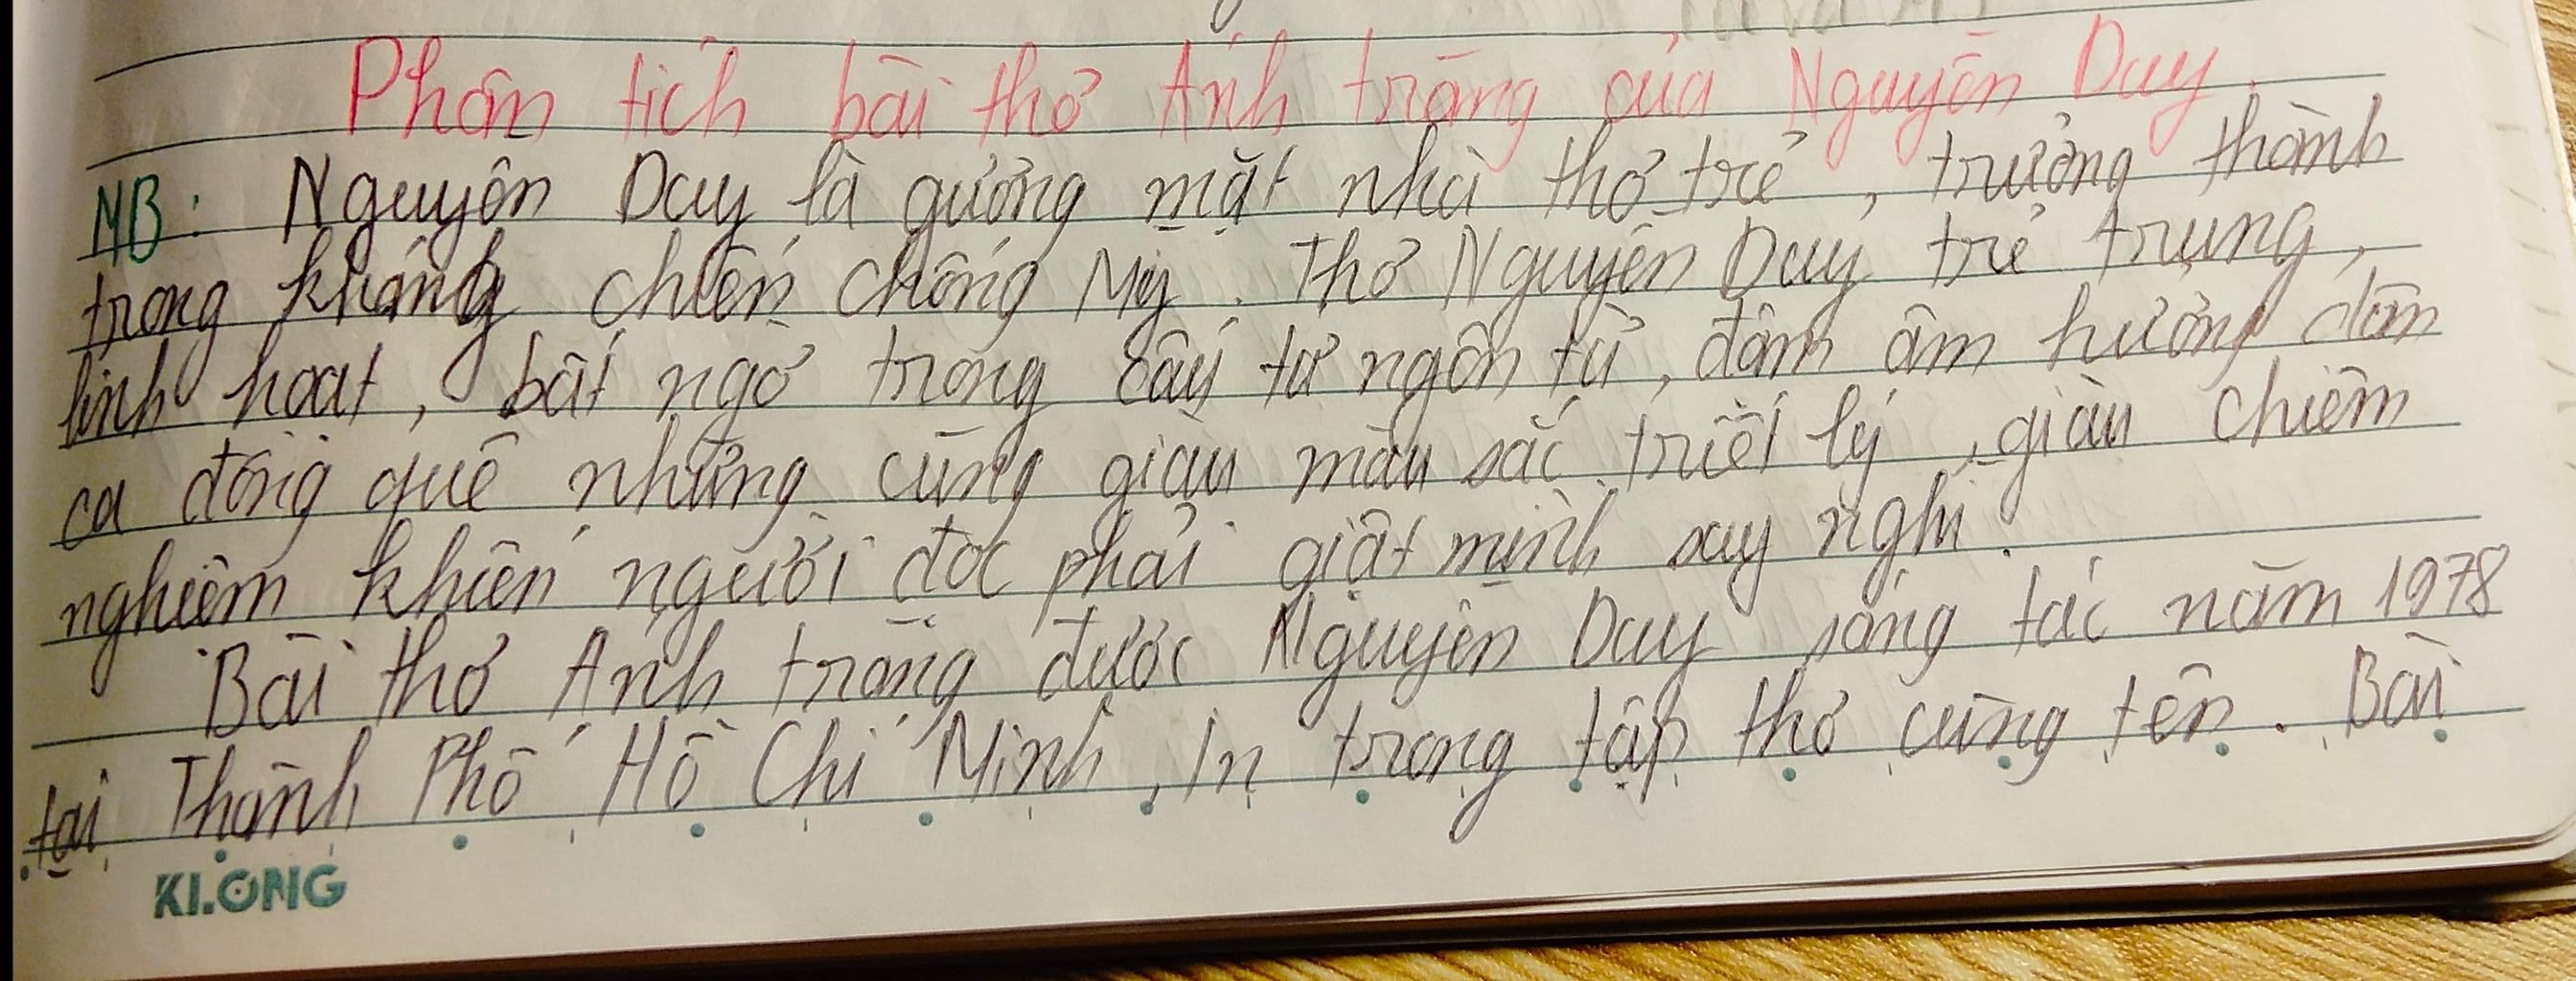 Phân tích bài thơ Ánh trăng của Nguyễn Duy.
MB: Nguyễn Duy là gương mặt nhà thơ trẻ, trưởng thành
trong kháng chiến chống Mỹ. Thơ Nguyễn Duy trẻ trung,
linh hoạt, bất ngờ trong cấu tứ ngôn từ, đậm âm hưởng dân
ca đồng quê nhưng cũng giàu màu sắc triết lý, giàu chiêm
nghiệm khiến người đọc phải giật mình suy nghĩ.
Bài thơ Ánh trăng được Nguyễn Duy sáng tác năm 1978
tại Thành Phố Hồ Chí Minh, In trong tập thơ cùng tên. Bài
KLONG